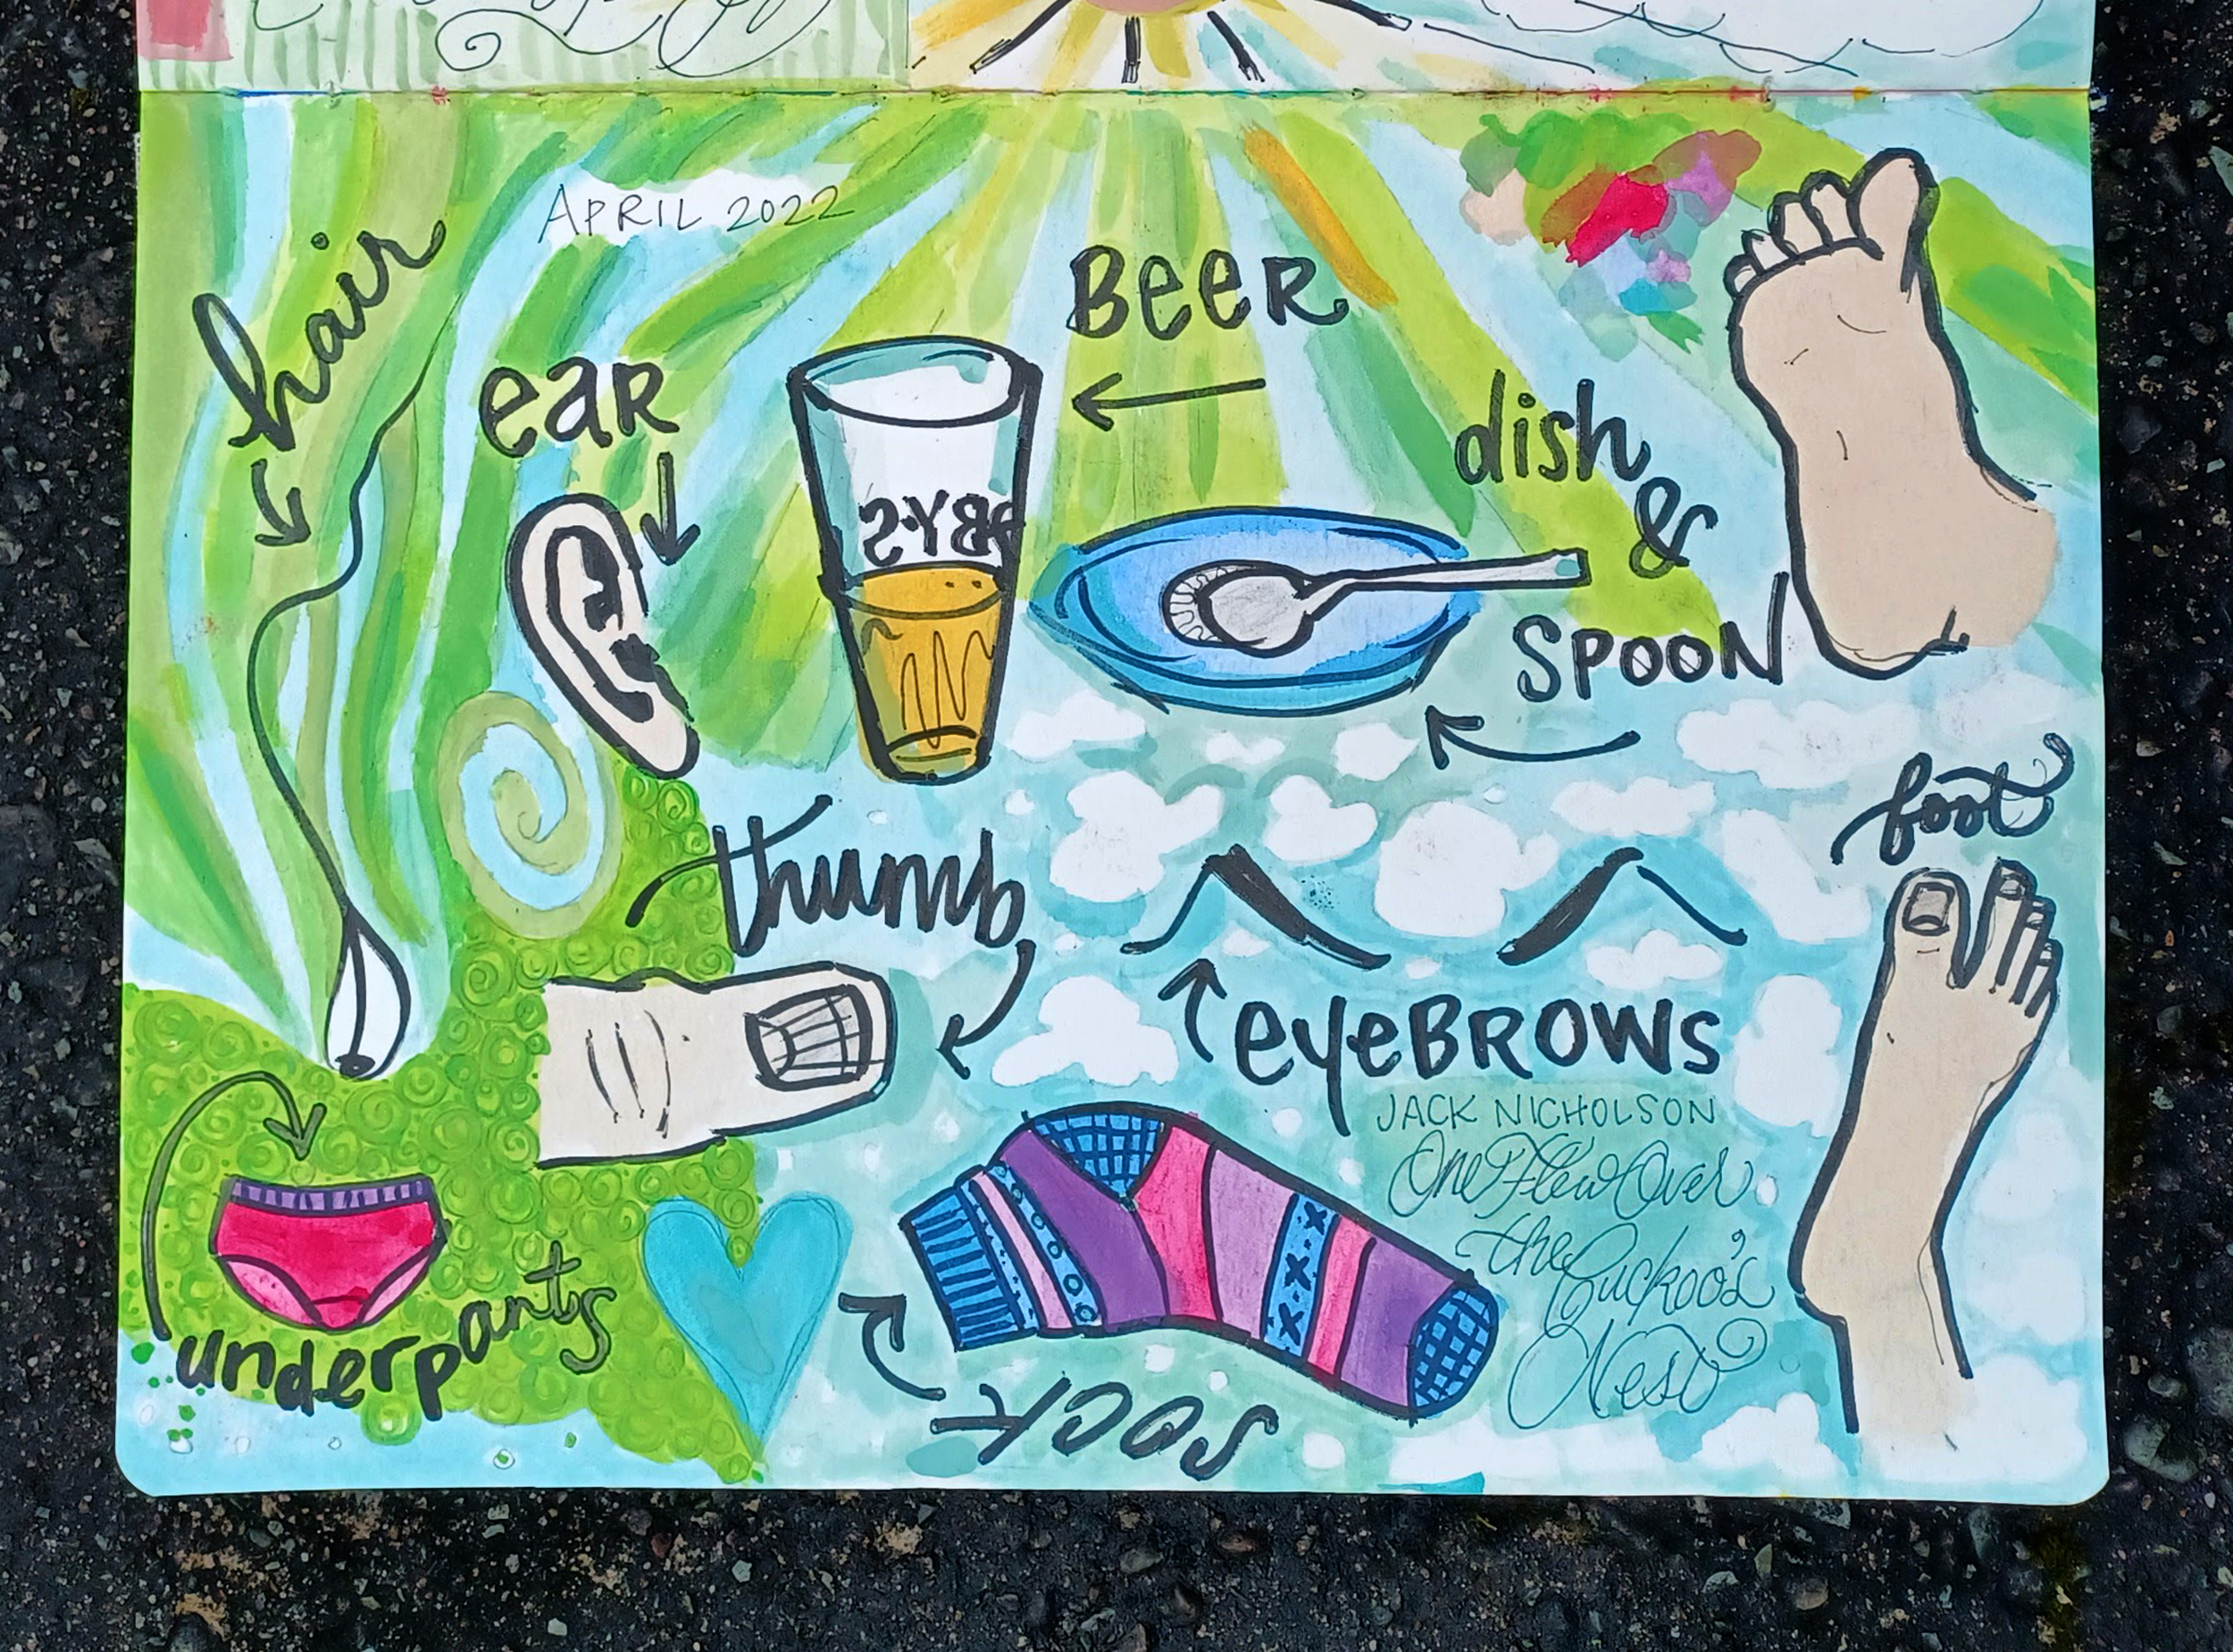 APRIL 2022
hair
BeeR
eaR
dish
&
SPOON
foot
thumb
eyeBROWS
JACK NICHOLSON
One Flew Over
the
Cuckoo's
Nest
underpants
SOCK